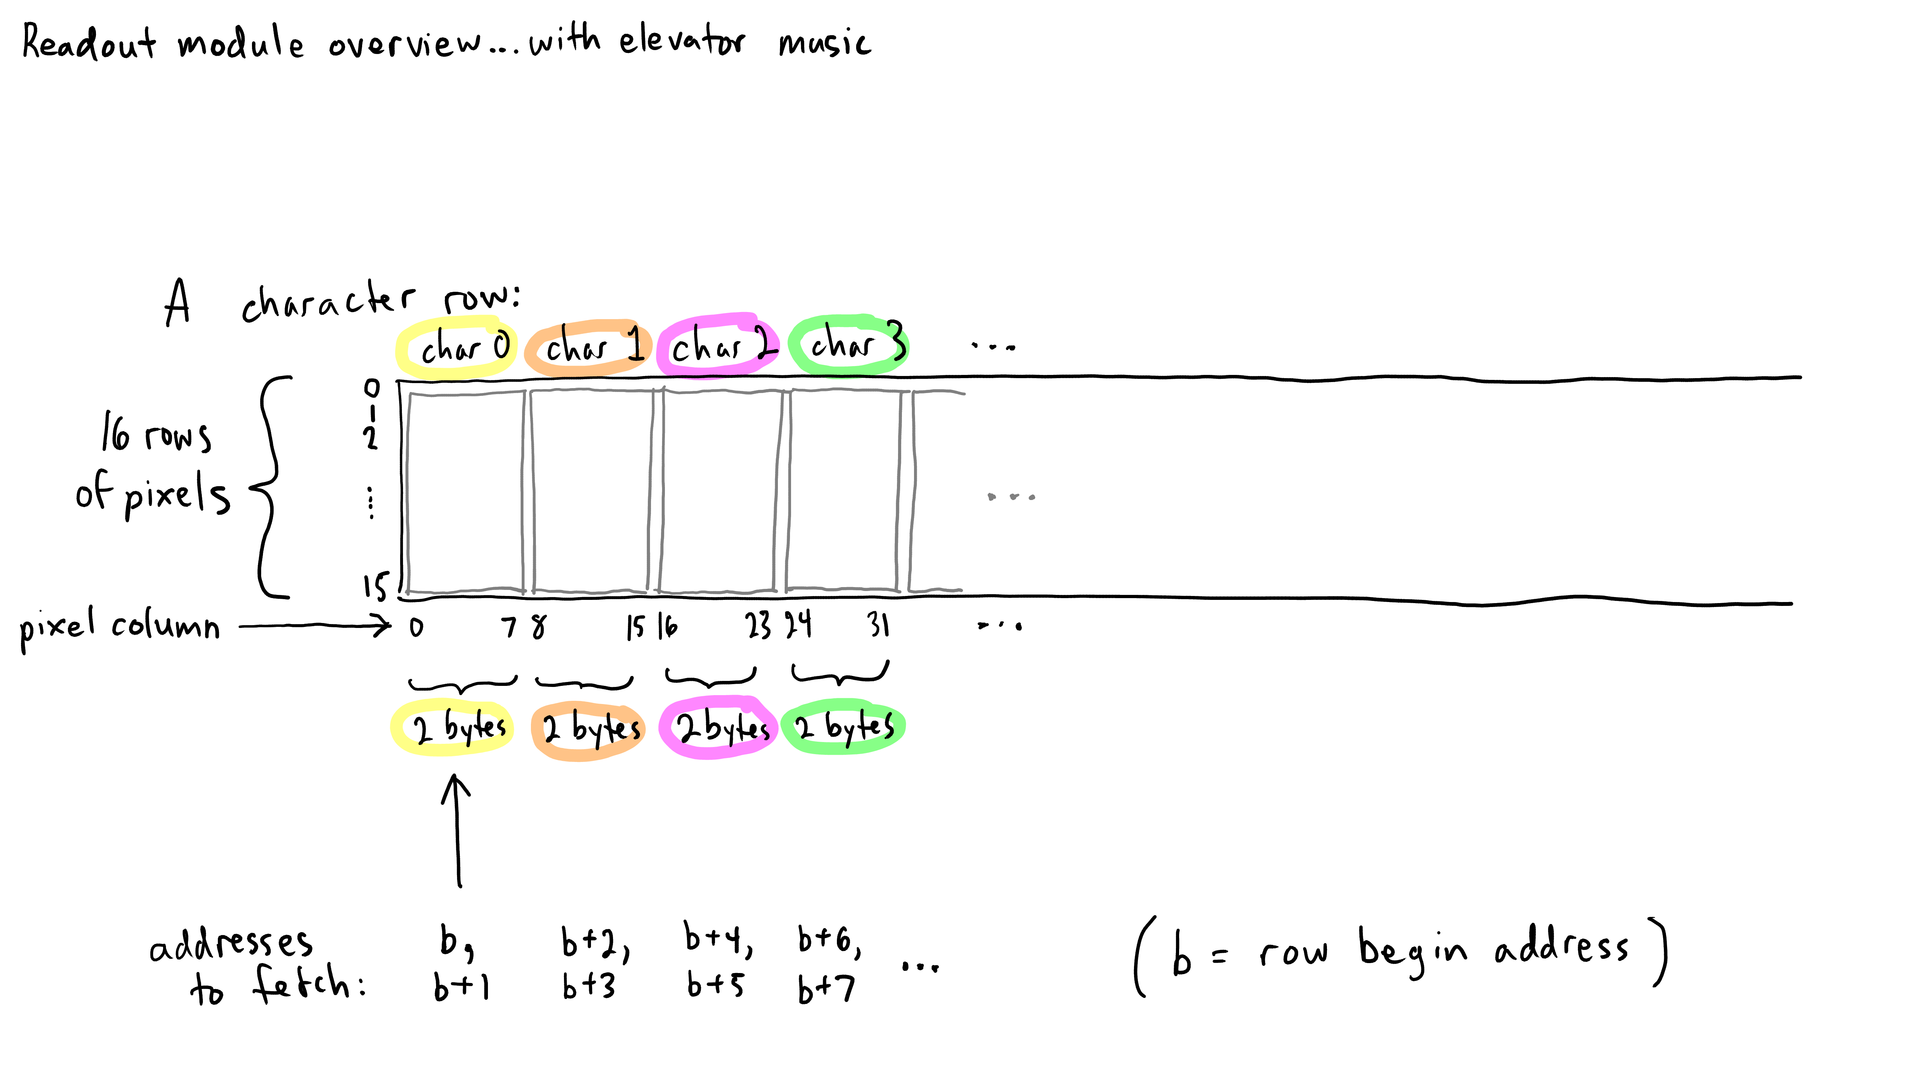 Readout module overview...with elevator music
A character row:
char 0 char 1 char 2 char 3 ...
16 rows
of pixels
0
1
2
...
15
pixel column 0 7 8 15 16 23 24 31 ...
2 bytes 2 bytes 2 bytes 2 bytes
addresses
to fetch:
b, b+2, b+4, b+6,
b+1 b+3 b+5 b+7 ...
(b = row begin address)